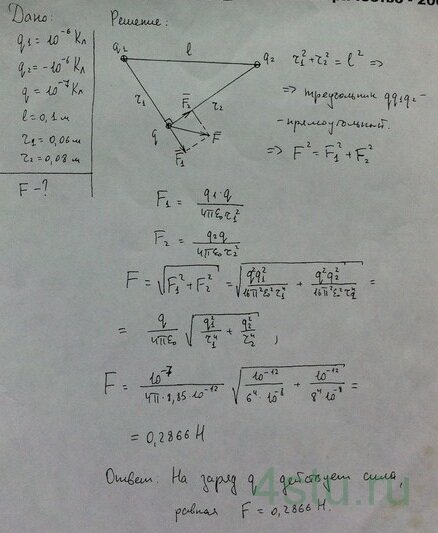 ричество - 200
Дано:
q1 = 10^-6 Кл
q2 = -10^-6 Кл
q = 10^-7 Кл
l = 0,1 м
τ1 = 0,06 м
τ2 = 0,08 м
F - ?
Решение:
q1
l
q2
τ1
F2
τ2
q
F
F1
τ1² + τ2² = l² =>
=> треугольник qq1q2 -
- прямоугольный.
=> F² = F1² + F2²
F1 = q1·q / 4πε0τ1²
F2 = q2q / 4πε0τ2²
F = √(F1² + F2²) = √(q²q1² / 16π²ε0²τ1⁴ + q²q2² / 16π²ε0²τ2⁴) =
= q / 4πε0 √(q1² / τ1⁴ + q2² / τ2⁴) ;
F = 10^-7 / 4π·8,85·10^-12 √(10^-12 / 6⁴·10^-8 + 10^-12 / 8⁴·10^-8) =
= 0,2866 Н
Ответ: На заряд q действует сила,
равная F = 0,2866 Н.
4stu.ru